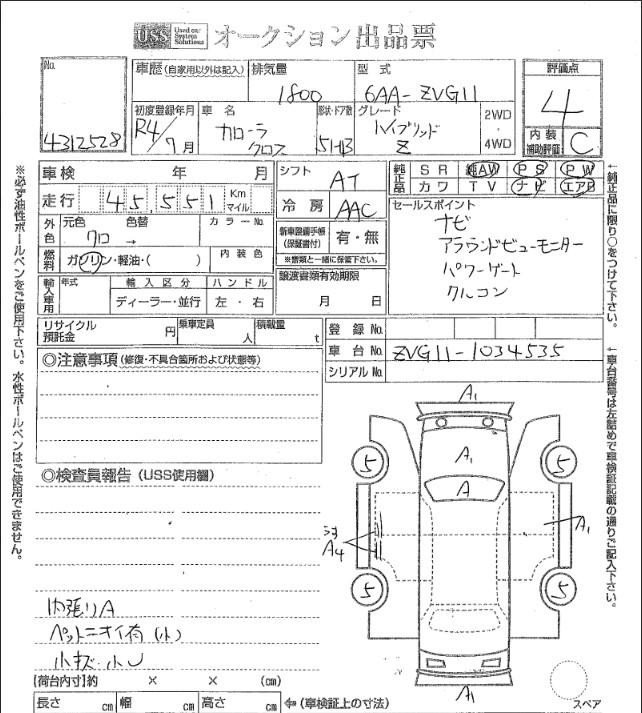 USS Used car System Solutions オークション出品票
No. 4312528
車歴(自家用以外は記入)
排気量 1800
型式 6AA-ZVG11
評価点 4
内装補助評価 C
初度登録年月 R4/7月
車名 カローラ クロス
形状・ドア数
グレード ハイブリッド Z
2WD・4WD
車検 年 月
走行 45,551 Km マイル
外色 元色 色替 カラーNo.
クロ →
燃料 ガソリン・軽油・( ) 内装色
輸入車用 年式 輸入区分 ハンドル
ディーラー・並行 左・右
リサイクル預託金 円 乗車定員 人 積載量 t
シフト AT
冷房 AAC
新車整備手帳(保証書付) 有・無
※書類と一緒に保管下さい。
譲渡書類有効期限 月 日
純正品 SR AW PS PW
カワ TV ナビ エアB
セールスポイント
ナビ
アラウンドビューモニター
パワーゲート
クルコン
登録No.
車台No. ZVG11-1034535
シリアルNo.
◎注意事項(修復・不具合箇所および状態等)
◎検査員報告(USS使用欄)
内張りA
ペットニオイ有(小)
小キズ・小U
A1
A1
A
A1
A4
A1
5 5
5 5
スペア
【荷台内寸】約 × × (cm)
長さ cm 幅 cm 高さ cm ⇦(車検証上の寸法)
※必ず油性ボールペンをご使用下さい。水性ボールペンはご使用できません。
←純正品に限り○をつけて下さい。
←車台番号は左詰めで車検証記載の通りご記入下さい。